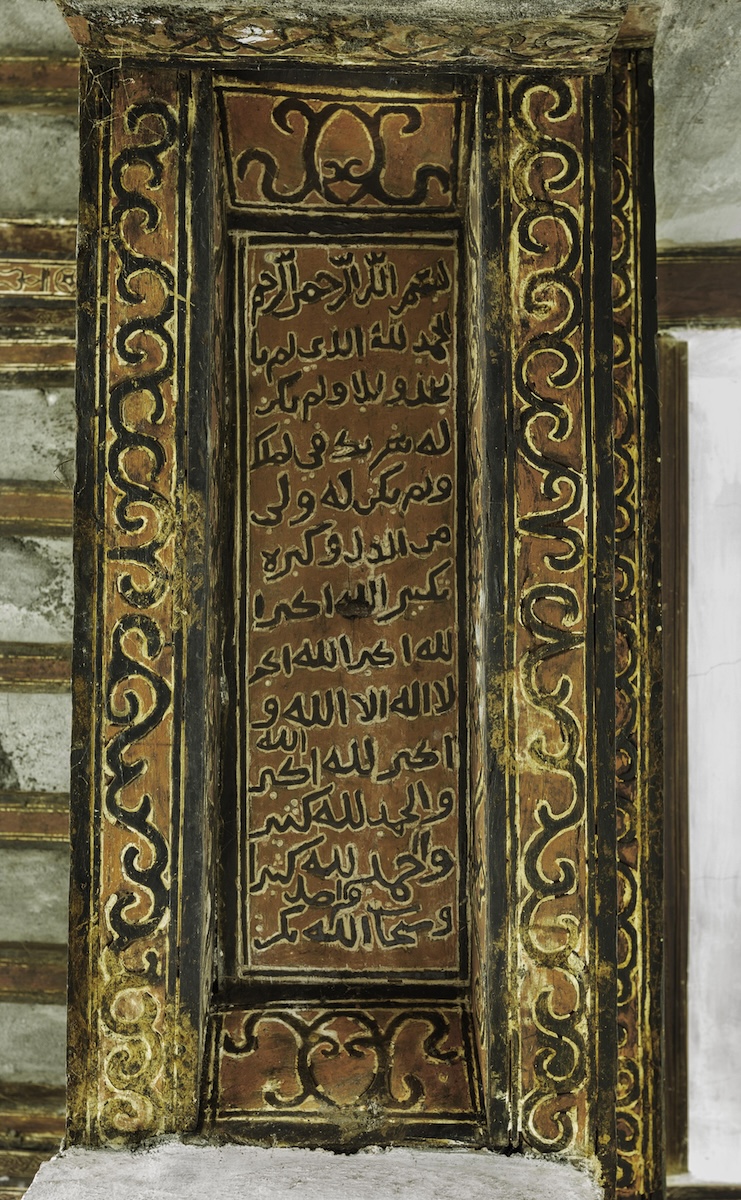 بسم الله الرحمن الرحيم
الحمد لله الذى لم يا
تخذ ولدا ولم يكن
له شريك فى لملك
ولم يكن له ولى
من الذل وكبره
تكبير الله اكبرا
لله اكبر الله اكبر
لا اله الا الله و
الله
اكبر لله اكبر
والحمد لله كثير
والحمد لله كثيرا
واحد
وسبحا الله بكر